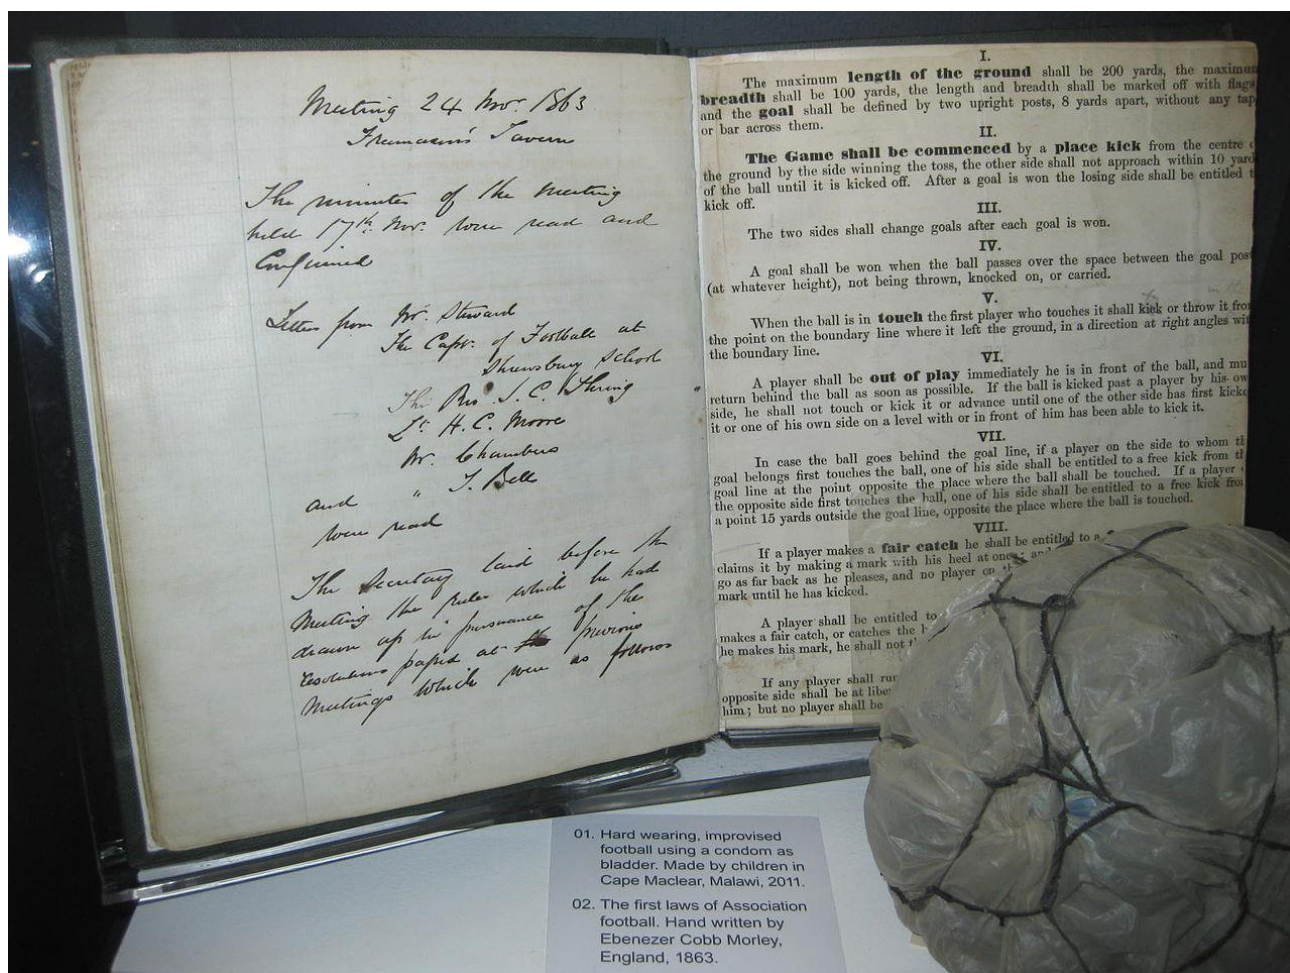 Meeting 24 Novr 1863
Freemason's Tavern
The minutes of the Meeting
held 17th Nov. were read and
Confirmed
Letters from Mr. Steward
The Captn. of Football at
Shrewsbury School
The Rev. J. C. Thring
Lt. H. C. Moore
Mr. Chambers
and " J. Bell
were read
The Secretary laid before the
Meeting the Rules which he had
drawn up in pursuance of the
resolutions passed at the previous
Meetings which were as follows
I.
The maximum length of the ground shall be 200 yards, the maximum
breadth shall be 100 yards, the length and breadth shall be marked off with flags
and the goal shall be defined by two upright posts, 8 yards apart, without any tap
or bar across them.
II.
The Game shall be commenced by a place kick from the centre o
the ground by the side winning the toss, the other side shall not approach within 10 yard
of the ball until it is kicked off. After a goal is won the losing side shall be entitled t
kick off.
III.
The two sides shall change goals after each goal is won.
IV.
A goal shall be won when the ball passes over the space between the goal post
(at whatever height), not being thrown, knocked on, or carried.
V.
When the ball is in touch the first player who touches it shall kick or throw it from
the point on the boundary line where it left the ground, in a direction at right angles wit
the boundary line.
VI.
A player shall be out of play immediately he is in front of the ball, and mu
return behind the ball as soon as possible. If the ball is kicked past a player by his ow
side, he shall not touch or kick it or advance until one of the other side has first kicke
it or one of his own side on a level with or in front of him has been able to kick it.
VII.
In case the ball goes behind the goal line, if a player on the side to whom th
goal belongs first touches the ball, one of his side shall be entitled to a free kick from th
goal line at the point opposite the place where the ball shall be touched. If a player
the opposite side first touches the ball, one of his side shall be entitled to a free kick from
a point 15 yards outside the goal line, opposite the place where the ball is touched.
VIII.
If a player makes a fair catch he shall be entitled to a
claims it by making a mark with his heel at once; and
go as far back as he pleases, and no player on
mark until he has kicked.
A player shall be entitled to
makes a fair catch, or catches the
he makes his mark, he shall not
If any player shall
opposite side shall be at
him; but no player shall be
01. Hard wearing, improvised
football using a condom as
bladder. Made by children in
Cape Maclear, Malawi, 2011.
02. The first laws of Association
football. Hand written by
Ebenezer Cobb Morley,
England, 1863.